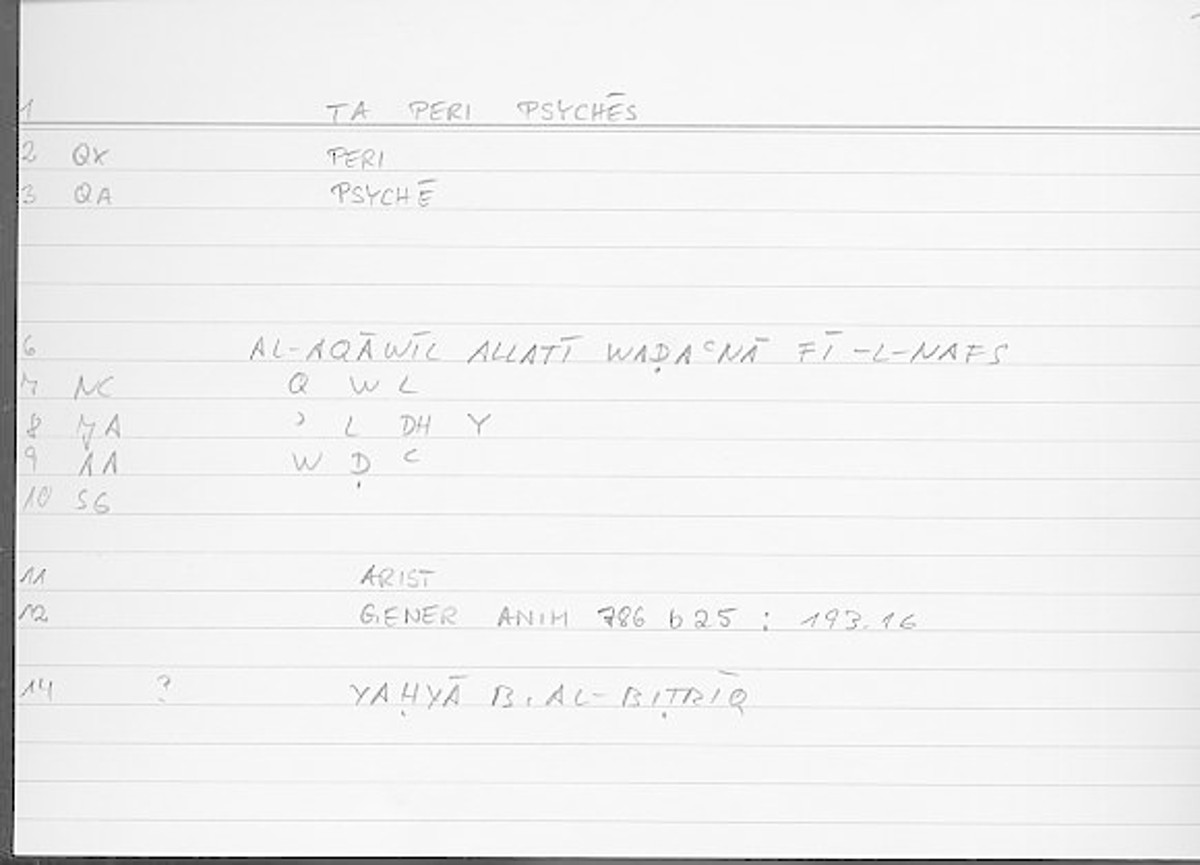 1 TA PERI PSYCHĒS
2 QX PERI
3 QA PSYCHĒ
6 AL-AQĀWĪL ALLATĪ WAḌAʿNĀ FĪ-L-NAFS
7 NC Q W L
8 JA ʾ L DH Y
9 AA W Ḍ ʿ
10 SG
11 ARIST
12 GENER ANIM 786 b 25 : 193.16
14 ? YAḤYĀ B. AL-BIṬRĪQ